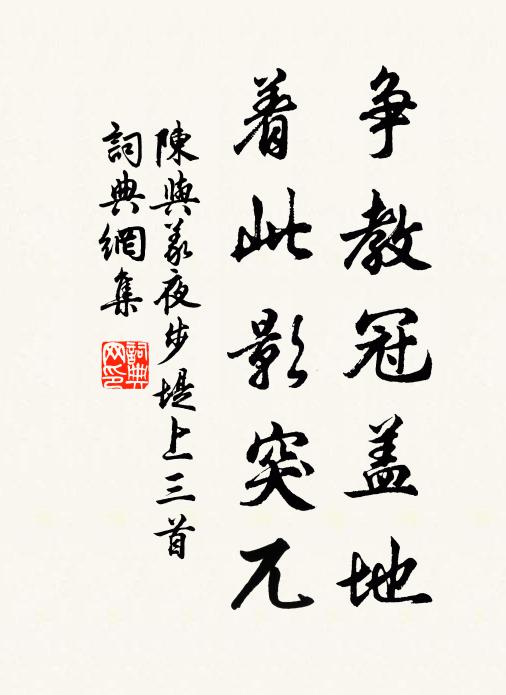 争教冠盖地
着此影突兀
陳與义夜步堤上三首
詞典網集
詞典网印